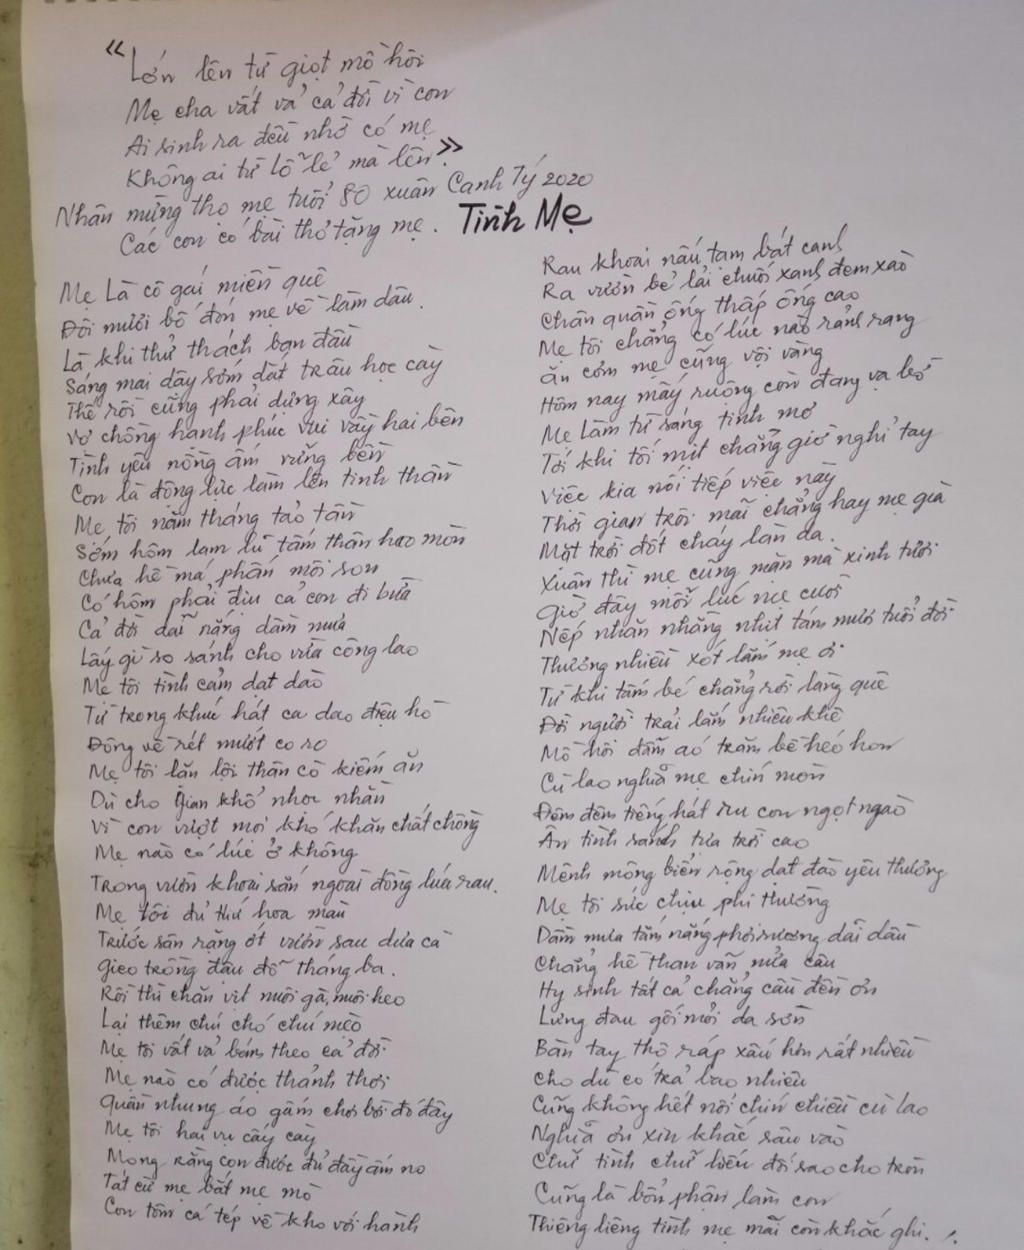 "Lớn lên từ giọt mồ hôi
Mẹ cha vất vả cả đời vì con
Ai sinh ra đều nhờ có mẹ
Không ai từ lỗ lẻ mà lên."
Nhân mừng thọ mẹ tuổi 80 xuân Canh Tý 2020
Các con có bài thơ tặng mẹ. Tình Mẹ
Mẹ Là cô gái miền quê
Đôi mươi bố đón mẹ về làm dâu.
Là khi thử thách ban đầu
Sáng mai dậy sớm dắt trâu học cày
Thế rồi cũng phải dựng xây
Vợ chồng hạnh phúc vui vầy hai bên
Tình yêu nồng ấm vững bền
Con là động lực làm lên tinh thần
Mẹ tôi năm tháng tảo tần
Sớm hôm lam lũ tấm thân hao mòn
Chưa hề má phấn môi son
Có hôm phải địu cả con đi bừa
Cả đời dãi nắng dầm mưa
Lấy gì so sánh cho vừa công lao
Mẹ tôi tình cảm dạt dào
Từ trong khúc hát ca dao điệu hò
Đông về rét mướt co ro
Mẹ tôi lặn lội thân cò kiếm ăn
Dù cho gian khổ nhọc nhằn
Vì con vượt mọi khó khăn chất chồng
Mẹ nào có lúc ở không
Trong vườn khoai sắn ngoài đồng lúa rau.
Mẹ tôi đủ thứ hoa màu
Trước sân rặng ớt vườn sau dưa cà
Gieo trồng đậu đỗ tháng ba.
Rồi thì chăn vịt nuôi gà, nuôi heo
Lại thêm chú chó chú mèo
Mẹ tôi vất vả bám theo cả đời
Mẹ nào có được thảnh thơi
Quần nhung áo gấm chơi bời đó đây
Mẹ tôi hai vụ cấy cày
Mong rằng con được đủ đầy ấm no
Tất cả mẹ bắt mẹ mò
Con tôm cá tép về kho với hành
Rau khoai nấu tạm bát canh
Ra vườn bẻ lải chuối xanh đem xào
Chân quần ống thấp ống cao
Mẹ tôi chẳng có lúc nào rảnh rang
Ăn cơm mẹ cũng vội vàng
Hôm nay mấy ruộng còn đang vạ bờ
Mẹ Làm từ sáng tinh mơ
Tới khi tối mịt chẳng giờ nghỉ tay
Việc kia nối tiếp việc này
Thời gian trôi mãi chẳng hay mẹ già
Mặt trời đốt cháy làn da.
Xuân thì mẹ cũng mặn mà xinh tươi
Giờ đây mỗi lúc mẹ cười
Nếp nhăn nhằng nhịt tám mươi tuổi đời
Thương nhiều xót lắm mẹ ơi
Từ khi tấm bé chẳng rời làng quê
Đời người trải lắm nhiêu khê
Mồ hôi đẫm áo trăm bề héo hon
Cù lao nghĩa mẹ chín mòn
Đêm đêm tiếng hát ru con ngọt ngào
Ân tình sánh tựa trời cao
Mênh mông biển rộng dạt dào yêu thương
Mẹ tôi sức chịu phi thường
Dầm mưa tắm nắng phơi sương dãi dầu
Chẳng hề than vãn nửa câu
Hy sinh tất cả chẳng cầu đền ơn
Lưng đau gối mỏi da sờn
Bàn tay thô ráp xấu hơn rất nhiều
Cho dù có trả bao nhiêu
Cũng không hết nổi chín chiều cù lao
Nghĩa ơn xin khắc sâu vào
Chữ tình chữ hiếu đối sao cho tròn
Cũng là bổn phận làm con
Thiêng liêng tình mẹ mãi còn khắc ghi.